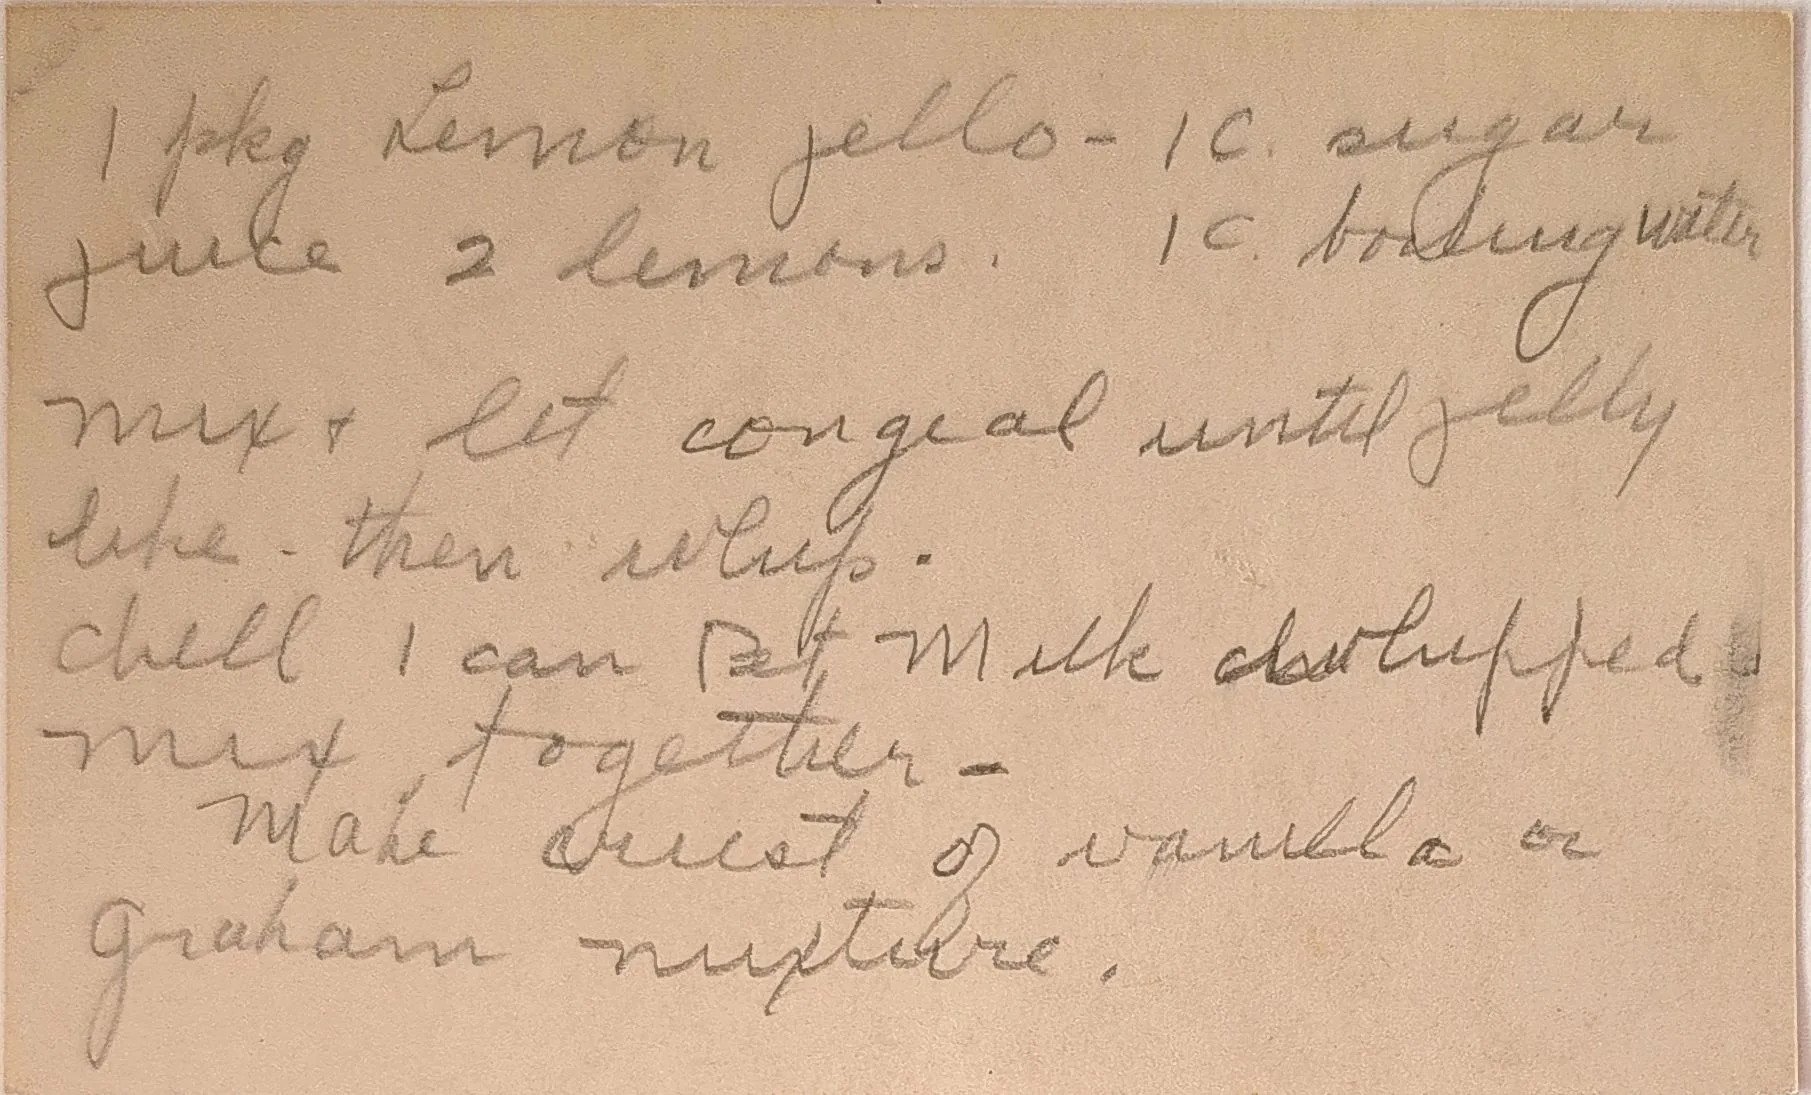 1 pkg Lemon jello - 1 C. sugar
juice 2 lemons. 1 C. boiling water
mix + let congeal until jelly
like - then whip.
chill 1 can Pet Milk whipped.
mix together -
Make crust of vanilla or
Graham mixture.